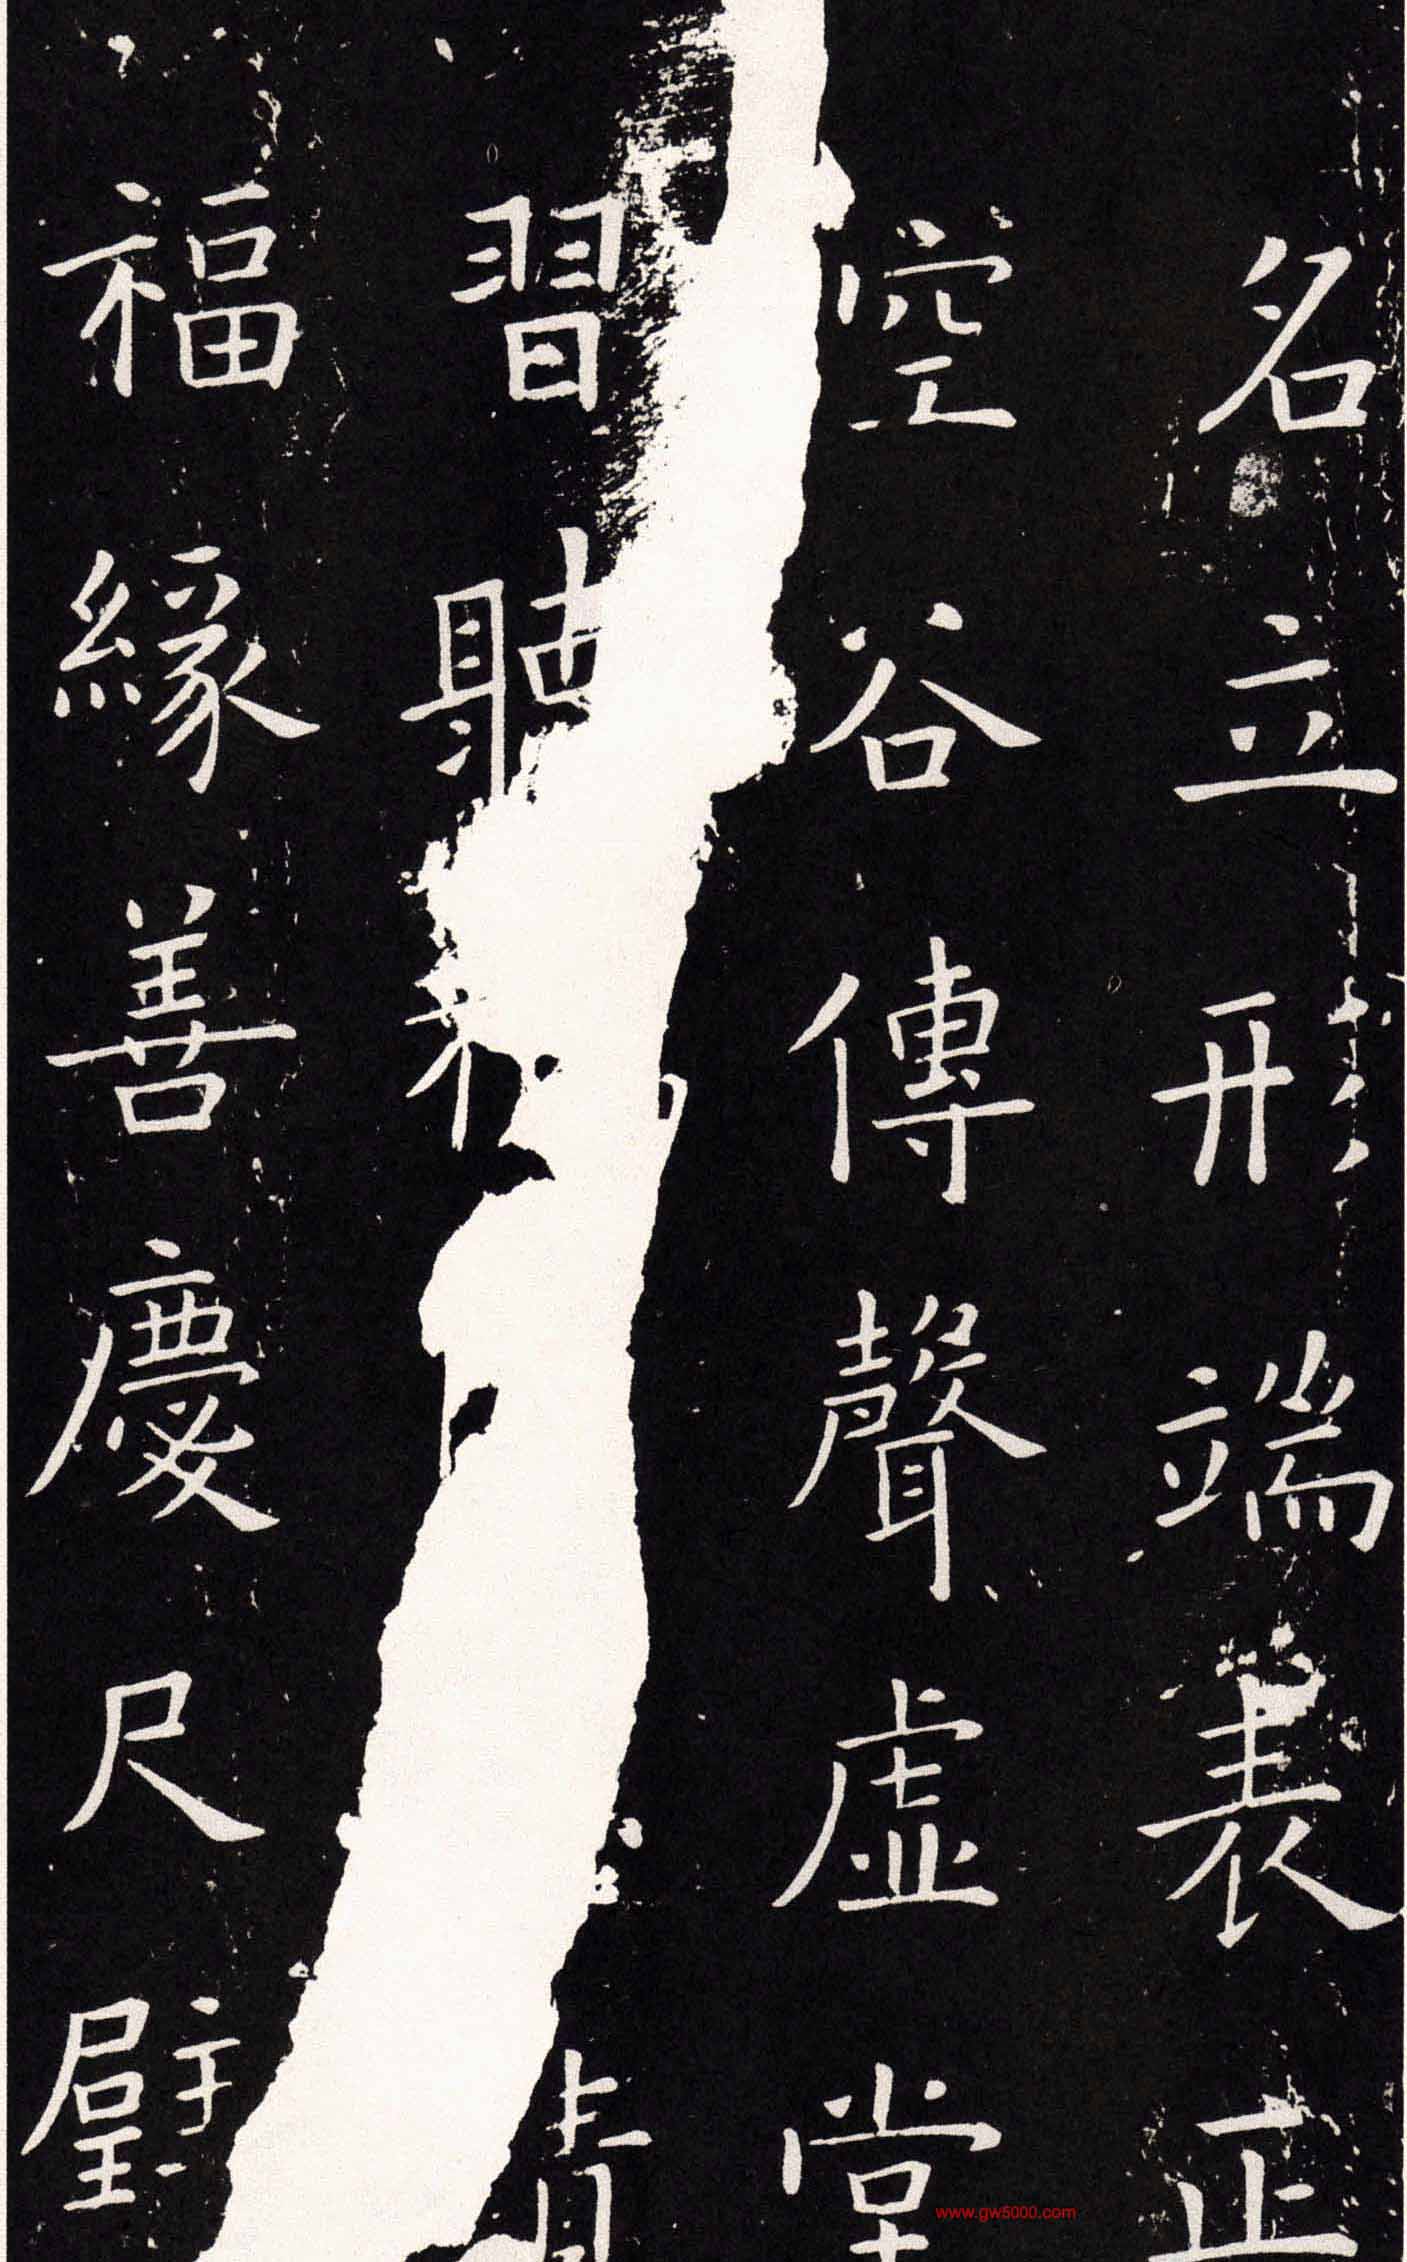 名立形端表正
空谷傳聲虛堂
習聽
福緣善慶尺璧
www.gw5000.com